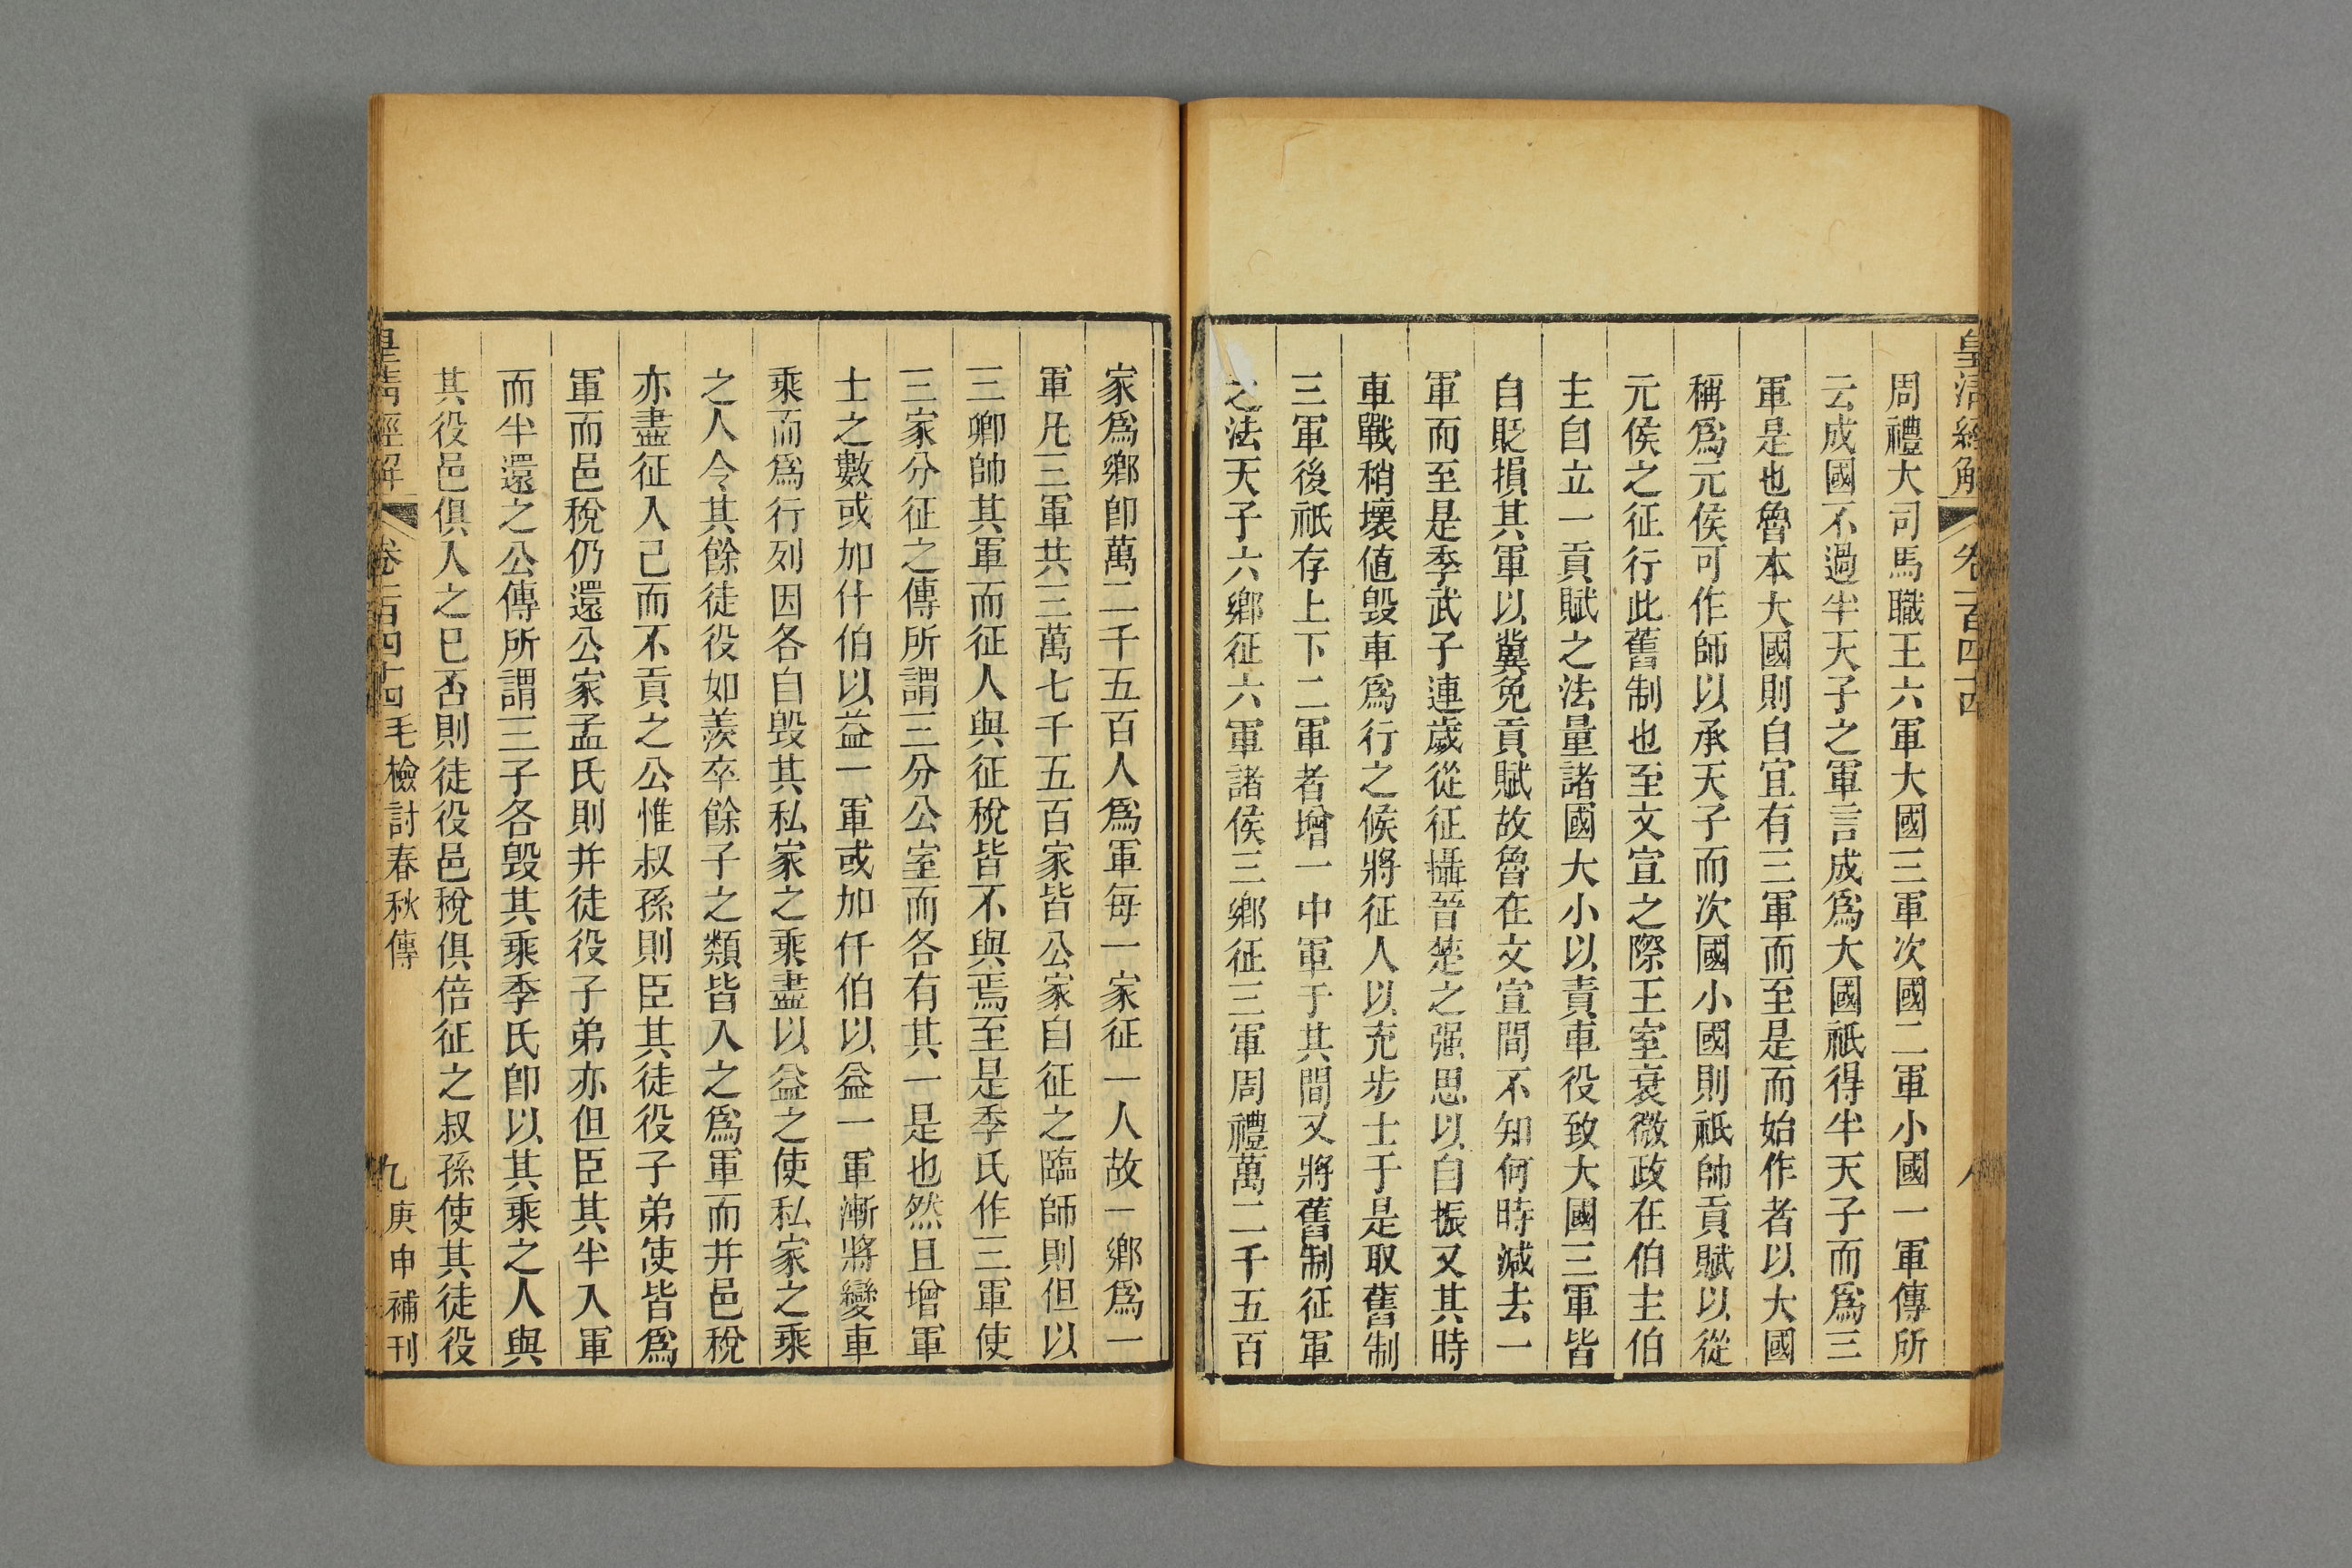 皇清經解 卷一百四十四 八
周禮大司馬職王六軍大國三軍次國二軍小國一軍傳所
云成國不過半天子之軍言成爲大國祇得半天子而爲三
軍是也魯本大國則自宜有三軍而至是而始作者以大國
稱爲元侯可作師以承天子而次國小國則祇帥貢賦以從
元侯之征行此舊制也至文宣之際王室衰微政在伯主伯
主自立一貢賦之法量諸國大小以責車役致大國三軍皆
自貶損其軍以冀免貢賦故魯在文宣間不知何時減去一
軍而至是季武子連歲從征攝晉楚之强思以自振又其時
車戰稍壞値毁車爲行之候將征人以充步士于是取舊制
三軍後祇存上下二軍者增一中軍于其間又將舊制征軍
之法天子六鄉征六軍諸侯三鄉征三軍周禮萬二千五百
家爲鄉卽萬二千五百人爲軍每一家征一人故一鄉爲一
軍凡三軍共三萬七千五百家皆公家自征之臨師則但以
三卿帥其軍而征人與征稅皆不與焉至是季氏作三軍使
三家分征之傳所謂三分公室而各有其一是也然且增軍
士之數或加什伯以益一軍或加仟伯以益一軍漸將變車
乘而爲行列因各自毁其私家之乘盡以益之使私家之乘
之人令其餘徒役如羨卒餘子之類皆入之爲軍而并邑稅
亦盡征入己而不貢之公惟叔孫則臣其徒役子弟使皆爲
軍而邑稅仍還公家孟氏則并徒役子弟亦但臣其半入軍
而半還之公傳所謂三子各毁其乘季氏卽以其乘之人與
其役邑俱入之巳否則徒役邑稅俱倍征之叔孫使其徒役
皇清經解 卷一百四十四 毛檢討春秋傳 九 庚申補刊